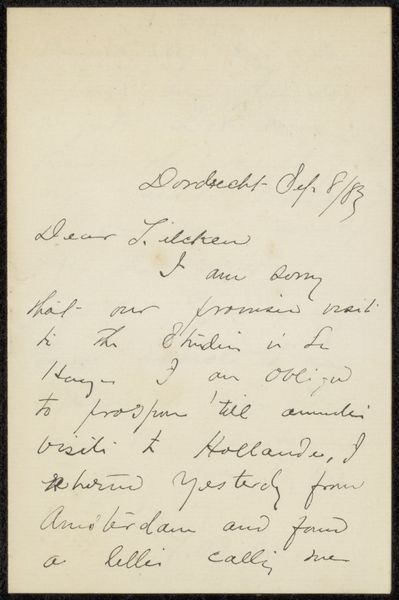 Dordrecht Sep 8/83
Dear Zilcken
I am sorry
that our promised visit
to the Studios in La
Haye I am obliged
to postpone 'till another
visit to Hollande, I
returned yesterdy from
Amsterdam and found
a letter calling me